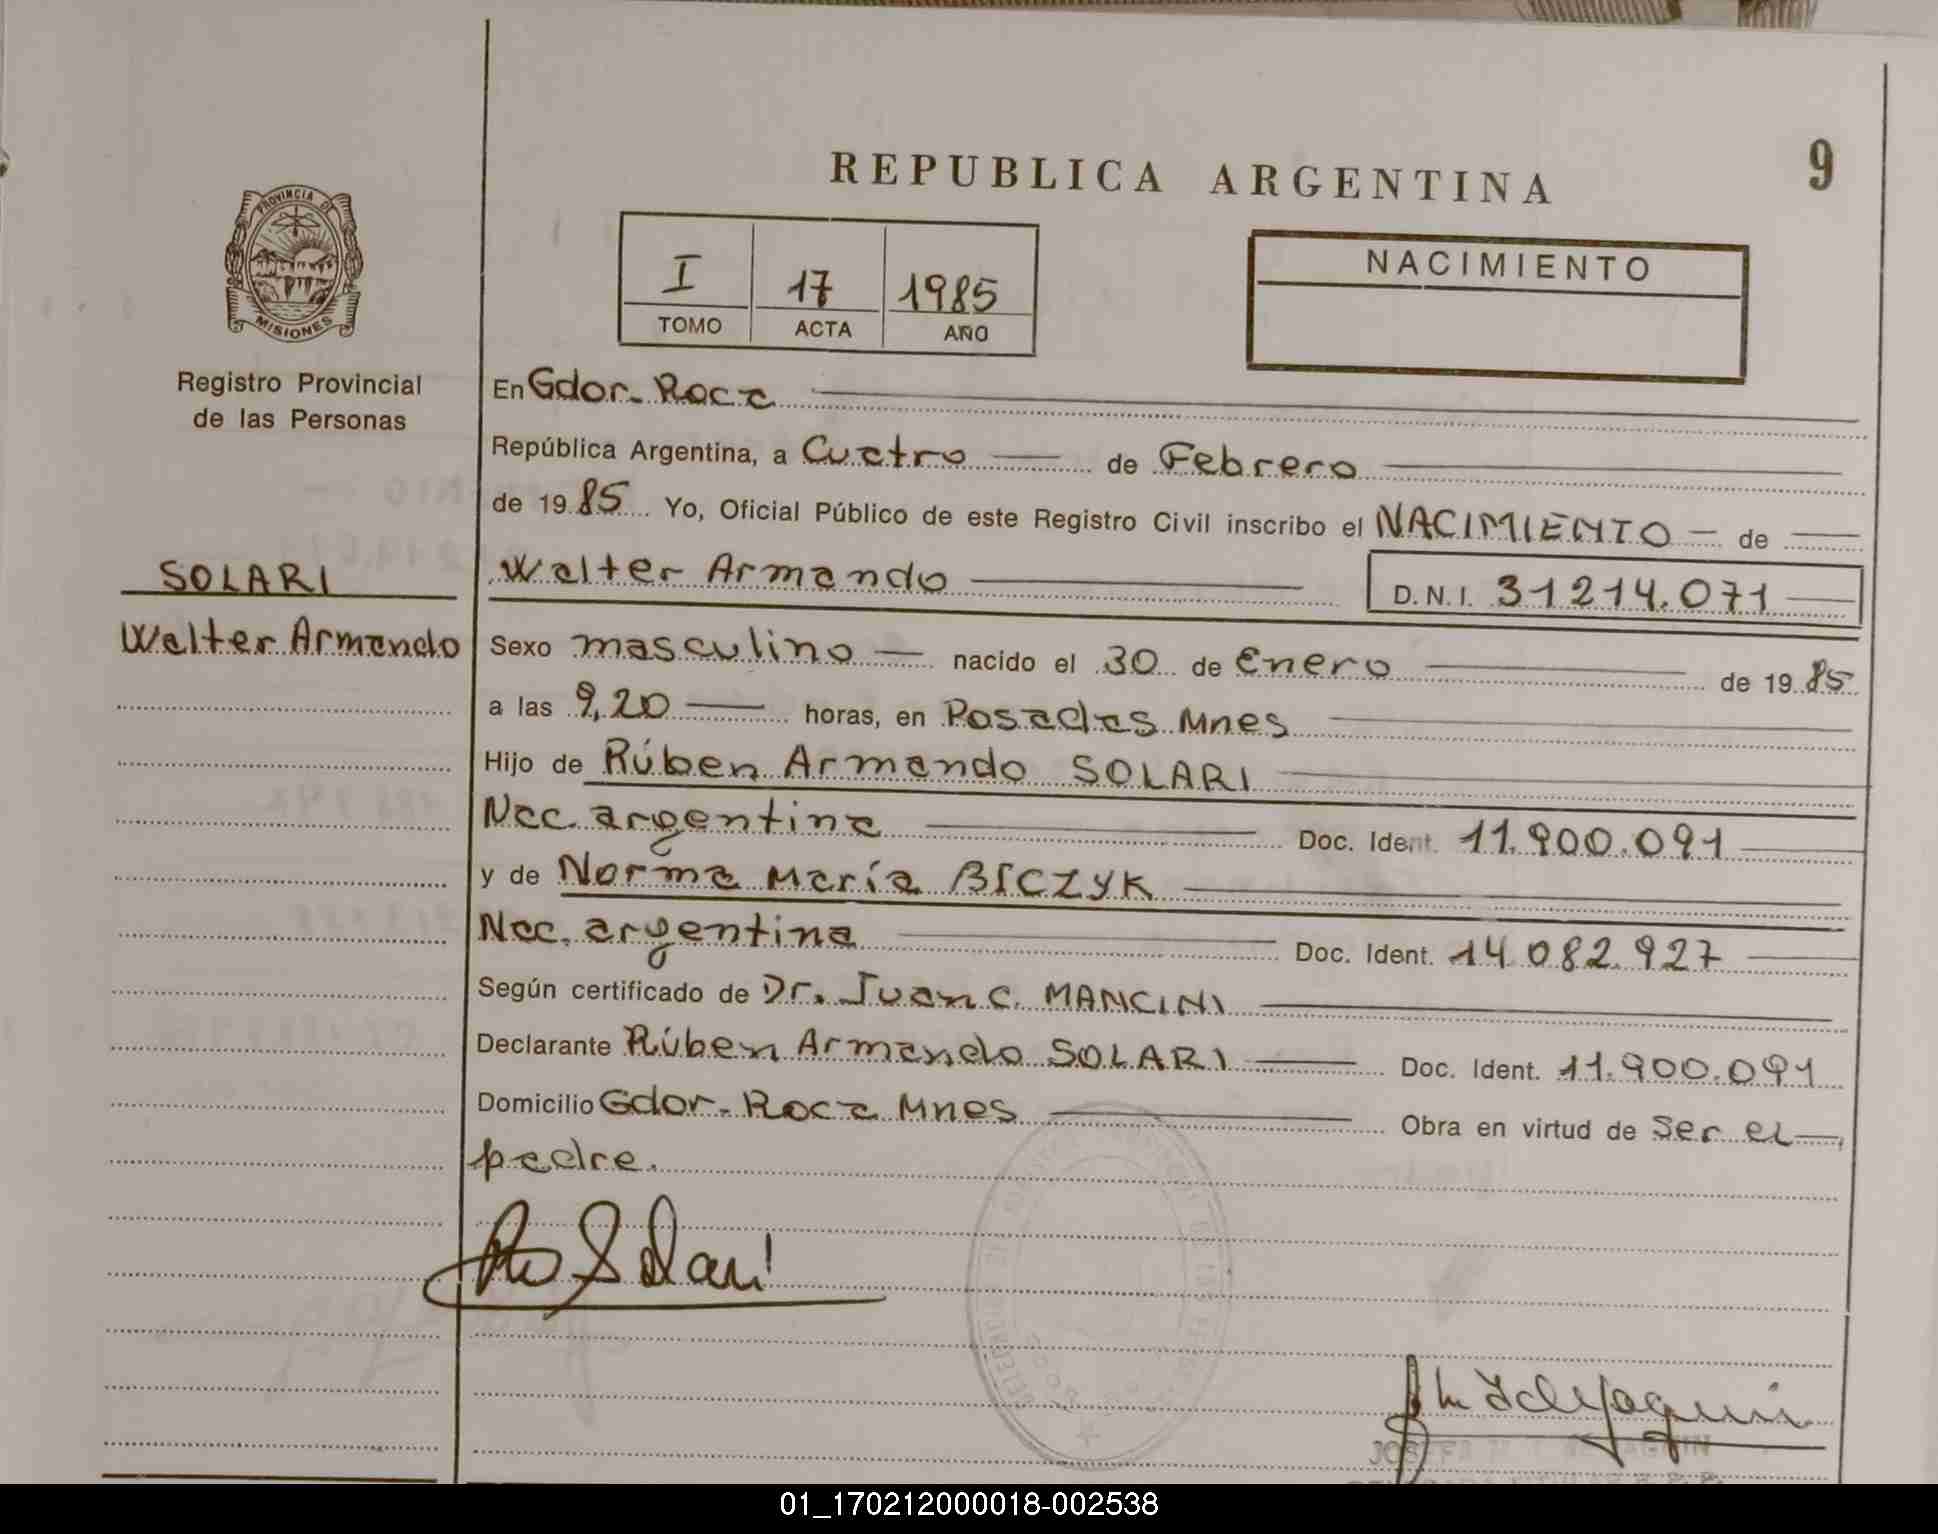 REPUBLICA ARGENTINA
9
PROVINCIA DE
MISIONES
Registro Provincial
de las Personas
I 17 1985
TOMO ACTA AÑO
NACIMIENTO
En Gdor. Roca
República Argentina, a Cuatro de Febrero
de 1985 Yo, Oficial Público de este Registro Civil inscribo el NACIMIENTO de
SOLARI
Walter Armando
Walter Armando D.N.I. 31214.071
Sexo masculino nacido el 30 de Enero de 1985
a las 9,20 horas, en Posadas Mnes
Hijo de Rúben Armando SOLARI
Nac. argentina Doc. Ident. 11.900.091
y de Norma María BICZYK
Nac. argentina Doc. Ident. 14.082.927
Según certificado de Dr. Juan C. MANCINI
Declarante Rúben Armando SOLARI Doc. Ident. 11.900.091
Domicilio Gdor. Roca Mnes Obra en virtud de ser el
padre.
Solari
01_170212000018-002538